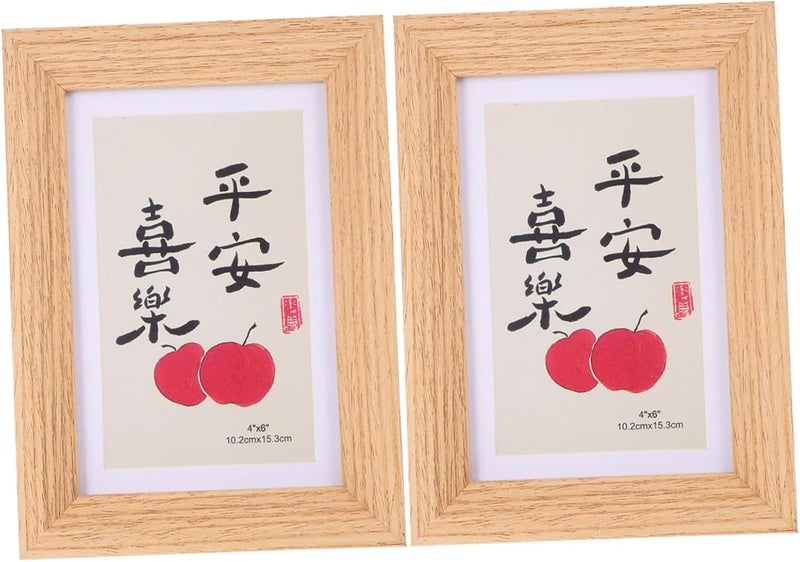 平安
喜樂
4"x6"
10.2cmx15.3cm
平安
喜樂
4"x6"
10.2cmx15.3cm